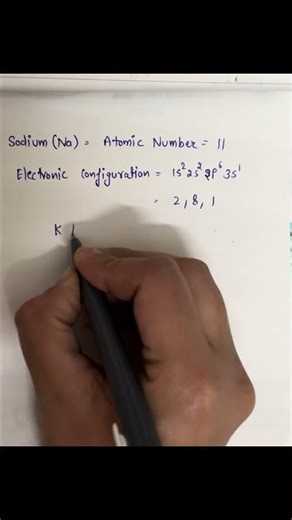 Sodium (Na) = Atomic Number = 11
Electronic Configuration = 1s² 2s² 2p⁶ 3s¹
= 2, 8, 1
K